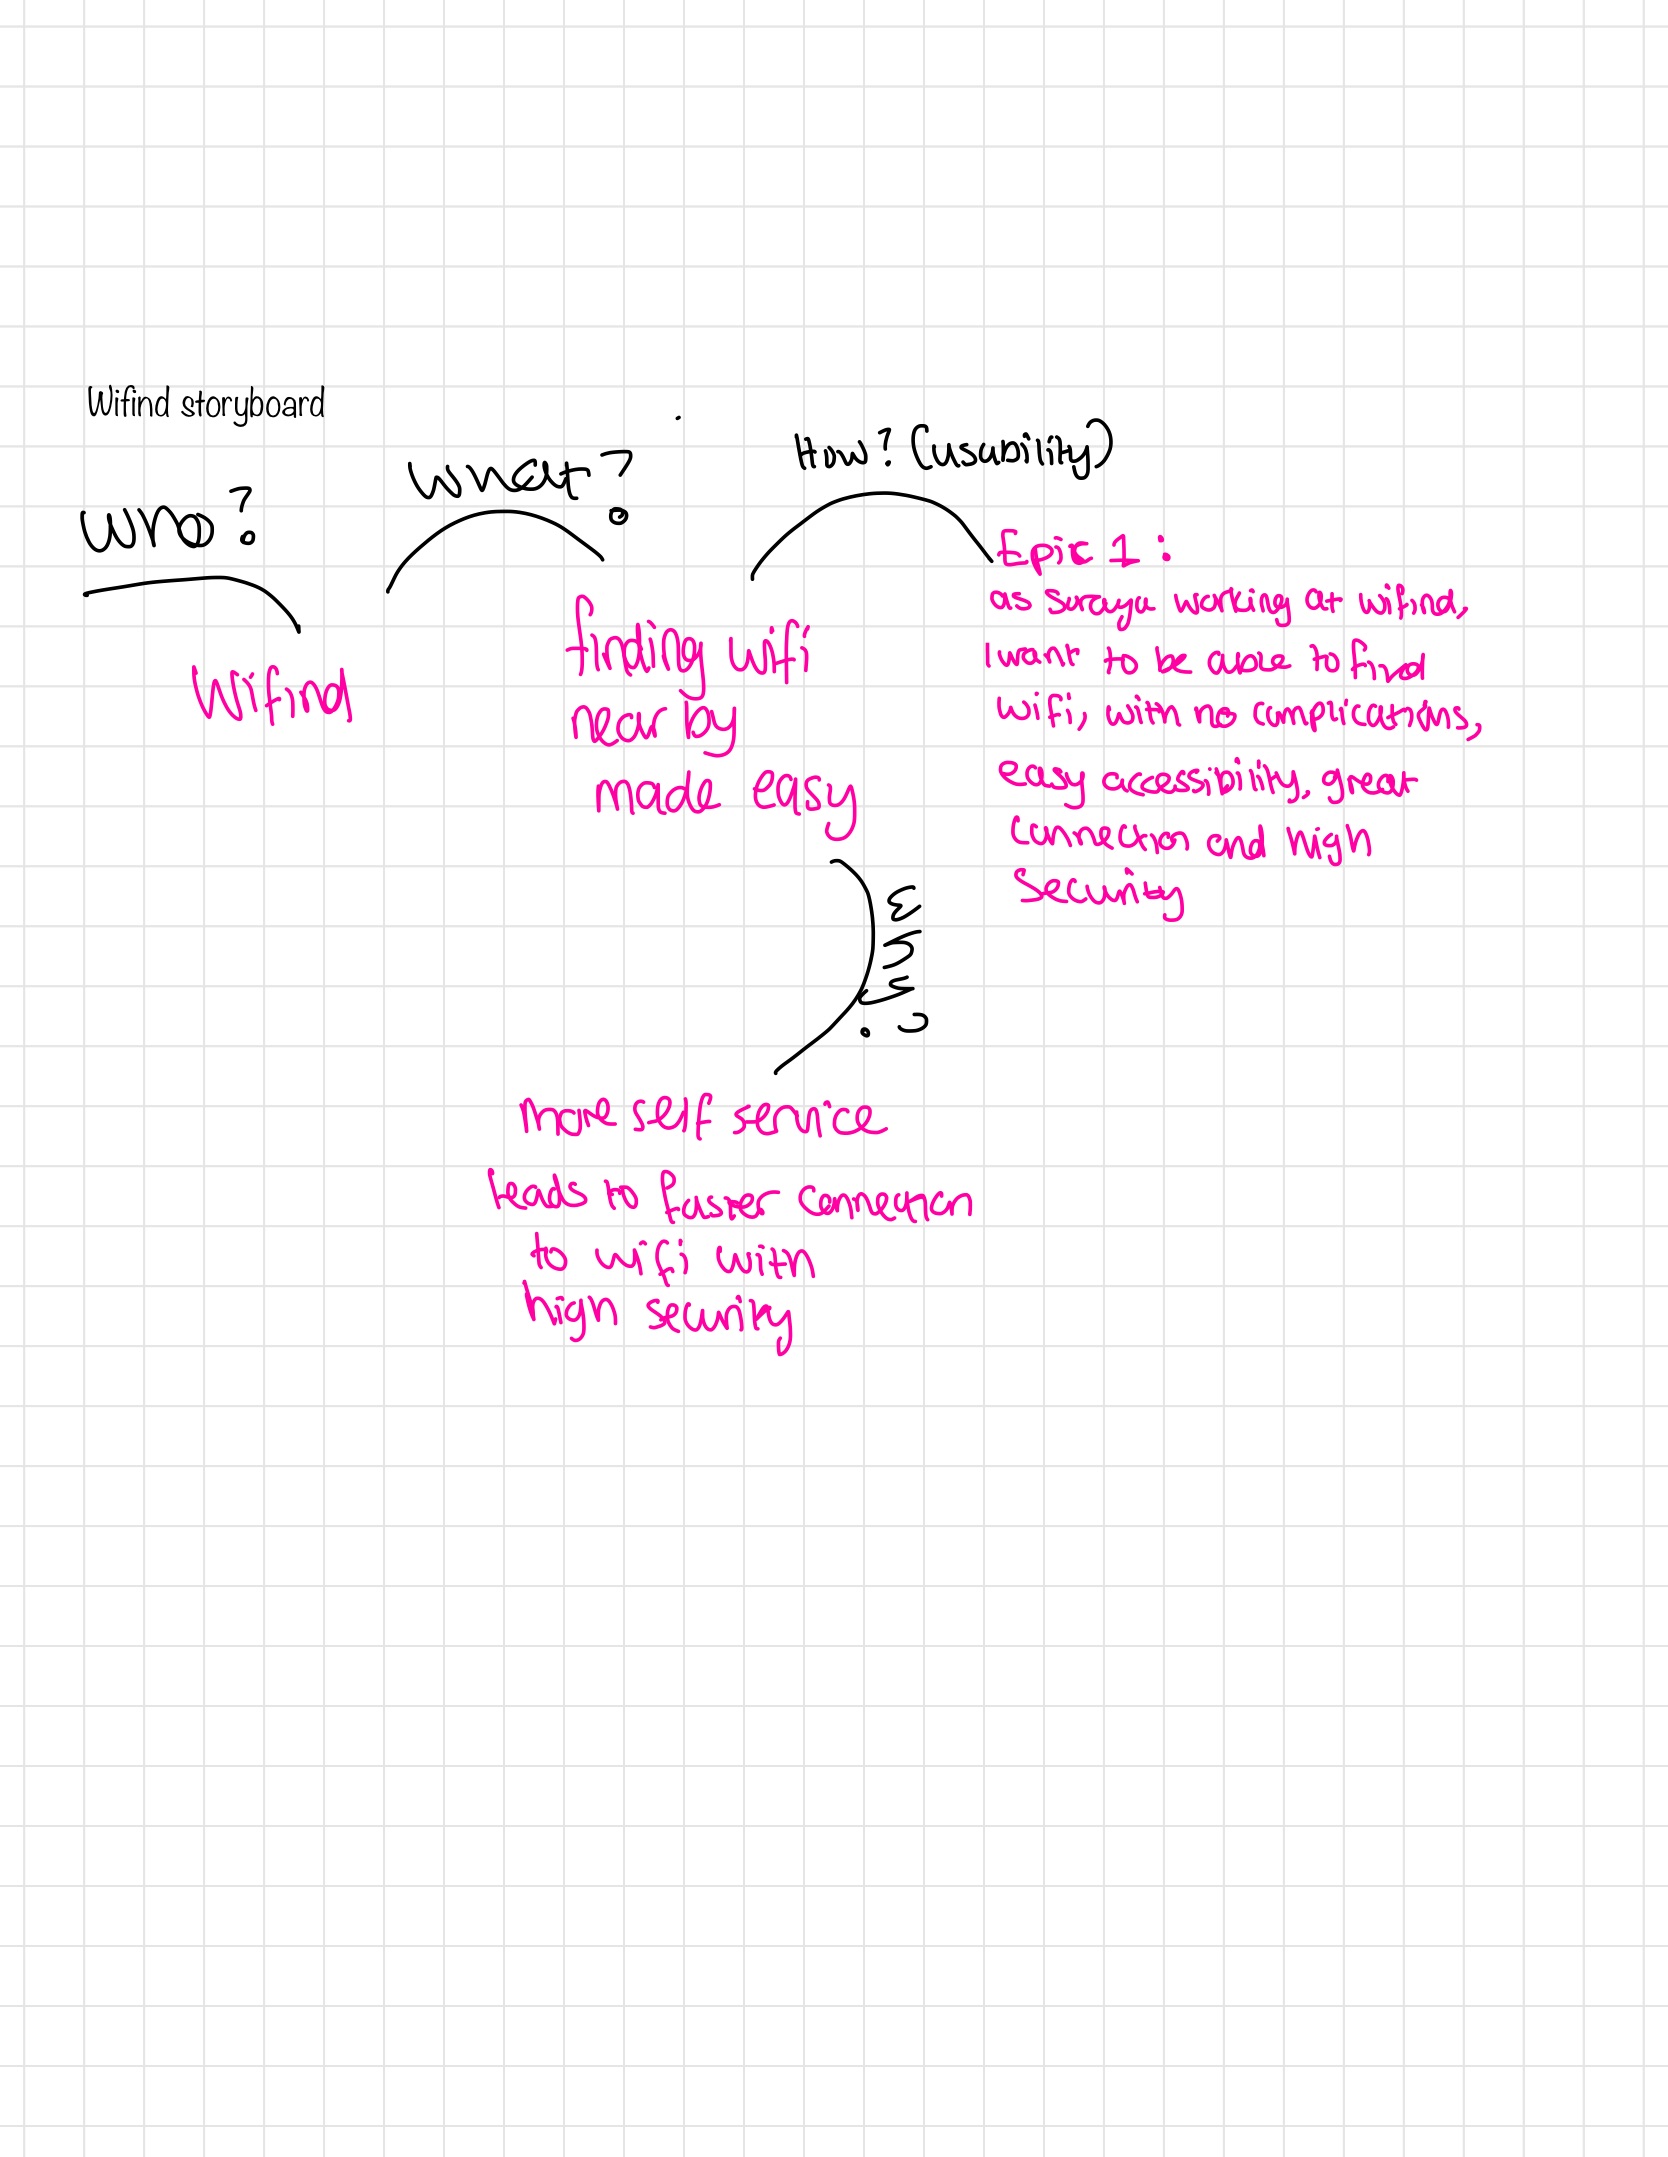 Wifind storyboard
who?
Wifind
what?
finding wifi
near by
made easy
How? (usability)
Epic 1 :
as Suraya working at wifind,
I want to be able to find
wifi, with no complications,
easy accessibility, great
connection and high
Security
why?
more self service
leads to faster connection
to wifi with
high security